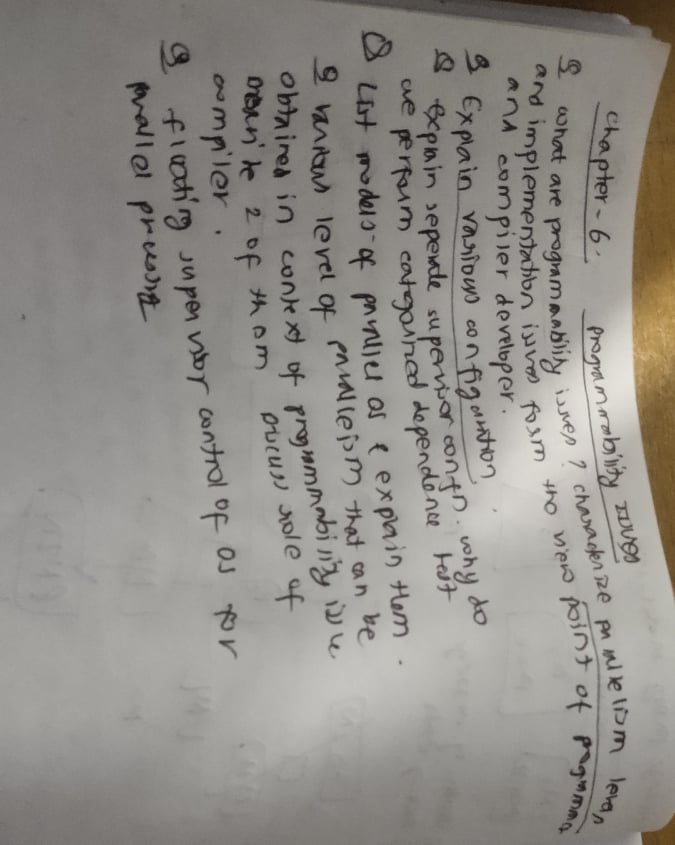 Chapter - 6. programmability issues
Q what are programmability issues ? characterize parallelism level
and implementation issues form the view point of programmer
and compiler developer.
Q Explain various configuration.
Q Explain seperate supervisor confn. why do
we perform categorized dependence test
Q List models of parallel os & explain them.
Q various level of parallelism that can be
obtained in context of programmability issue
2 of them discuss role of
compiler.
Q floating supervisor control of os for
parallel